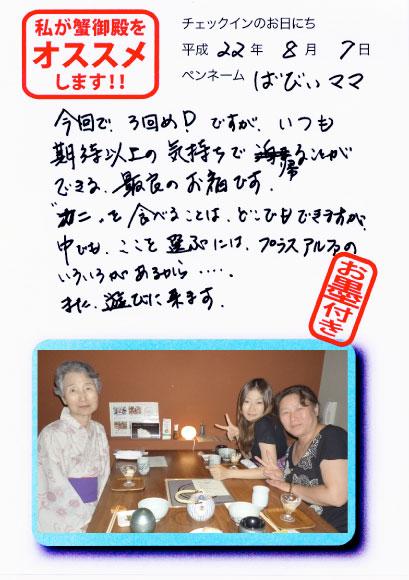 私が蟹御殿を
オススメ
します!!
チェックインのお日にち
平成 22 年 8 月 7 日
ペンネーム ばびぃママ
今回で、3回め!ですが、いつも
期待以上の気持ちで 帰ることが
できる、最良のお宿です。
"カニ"を食べることは、どこでもできますが、
中でも、ここを選ぶには、プラスアルファの
いろいろがあるから・・・・。
また、遊びに来ます。
お墨付き